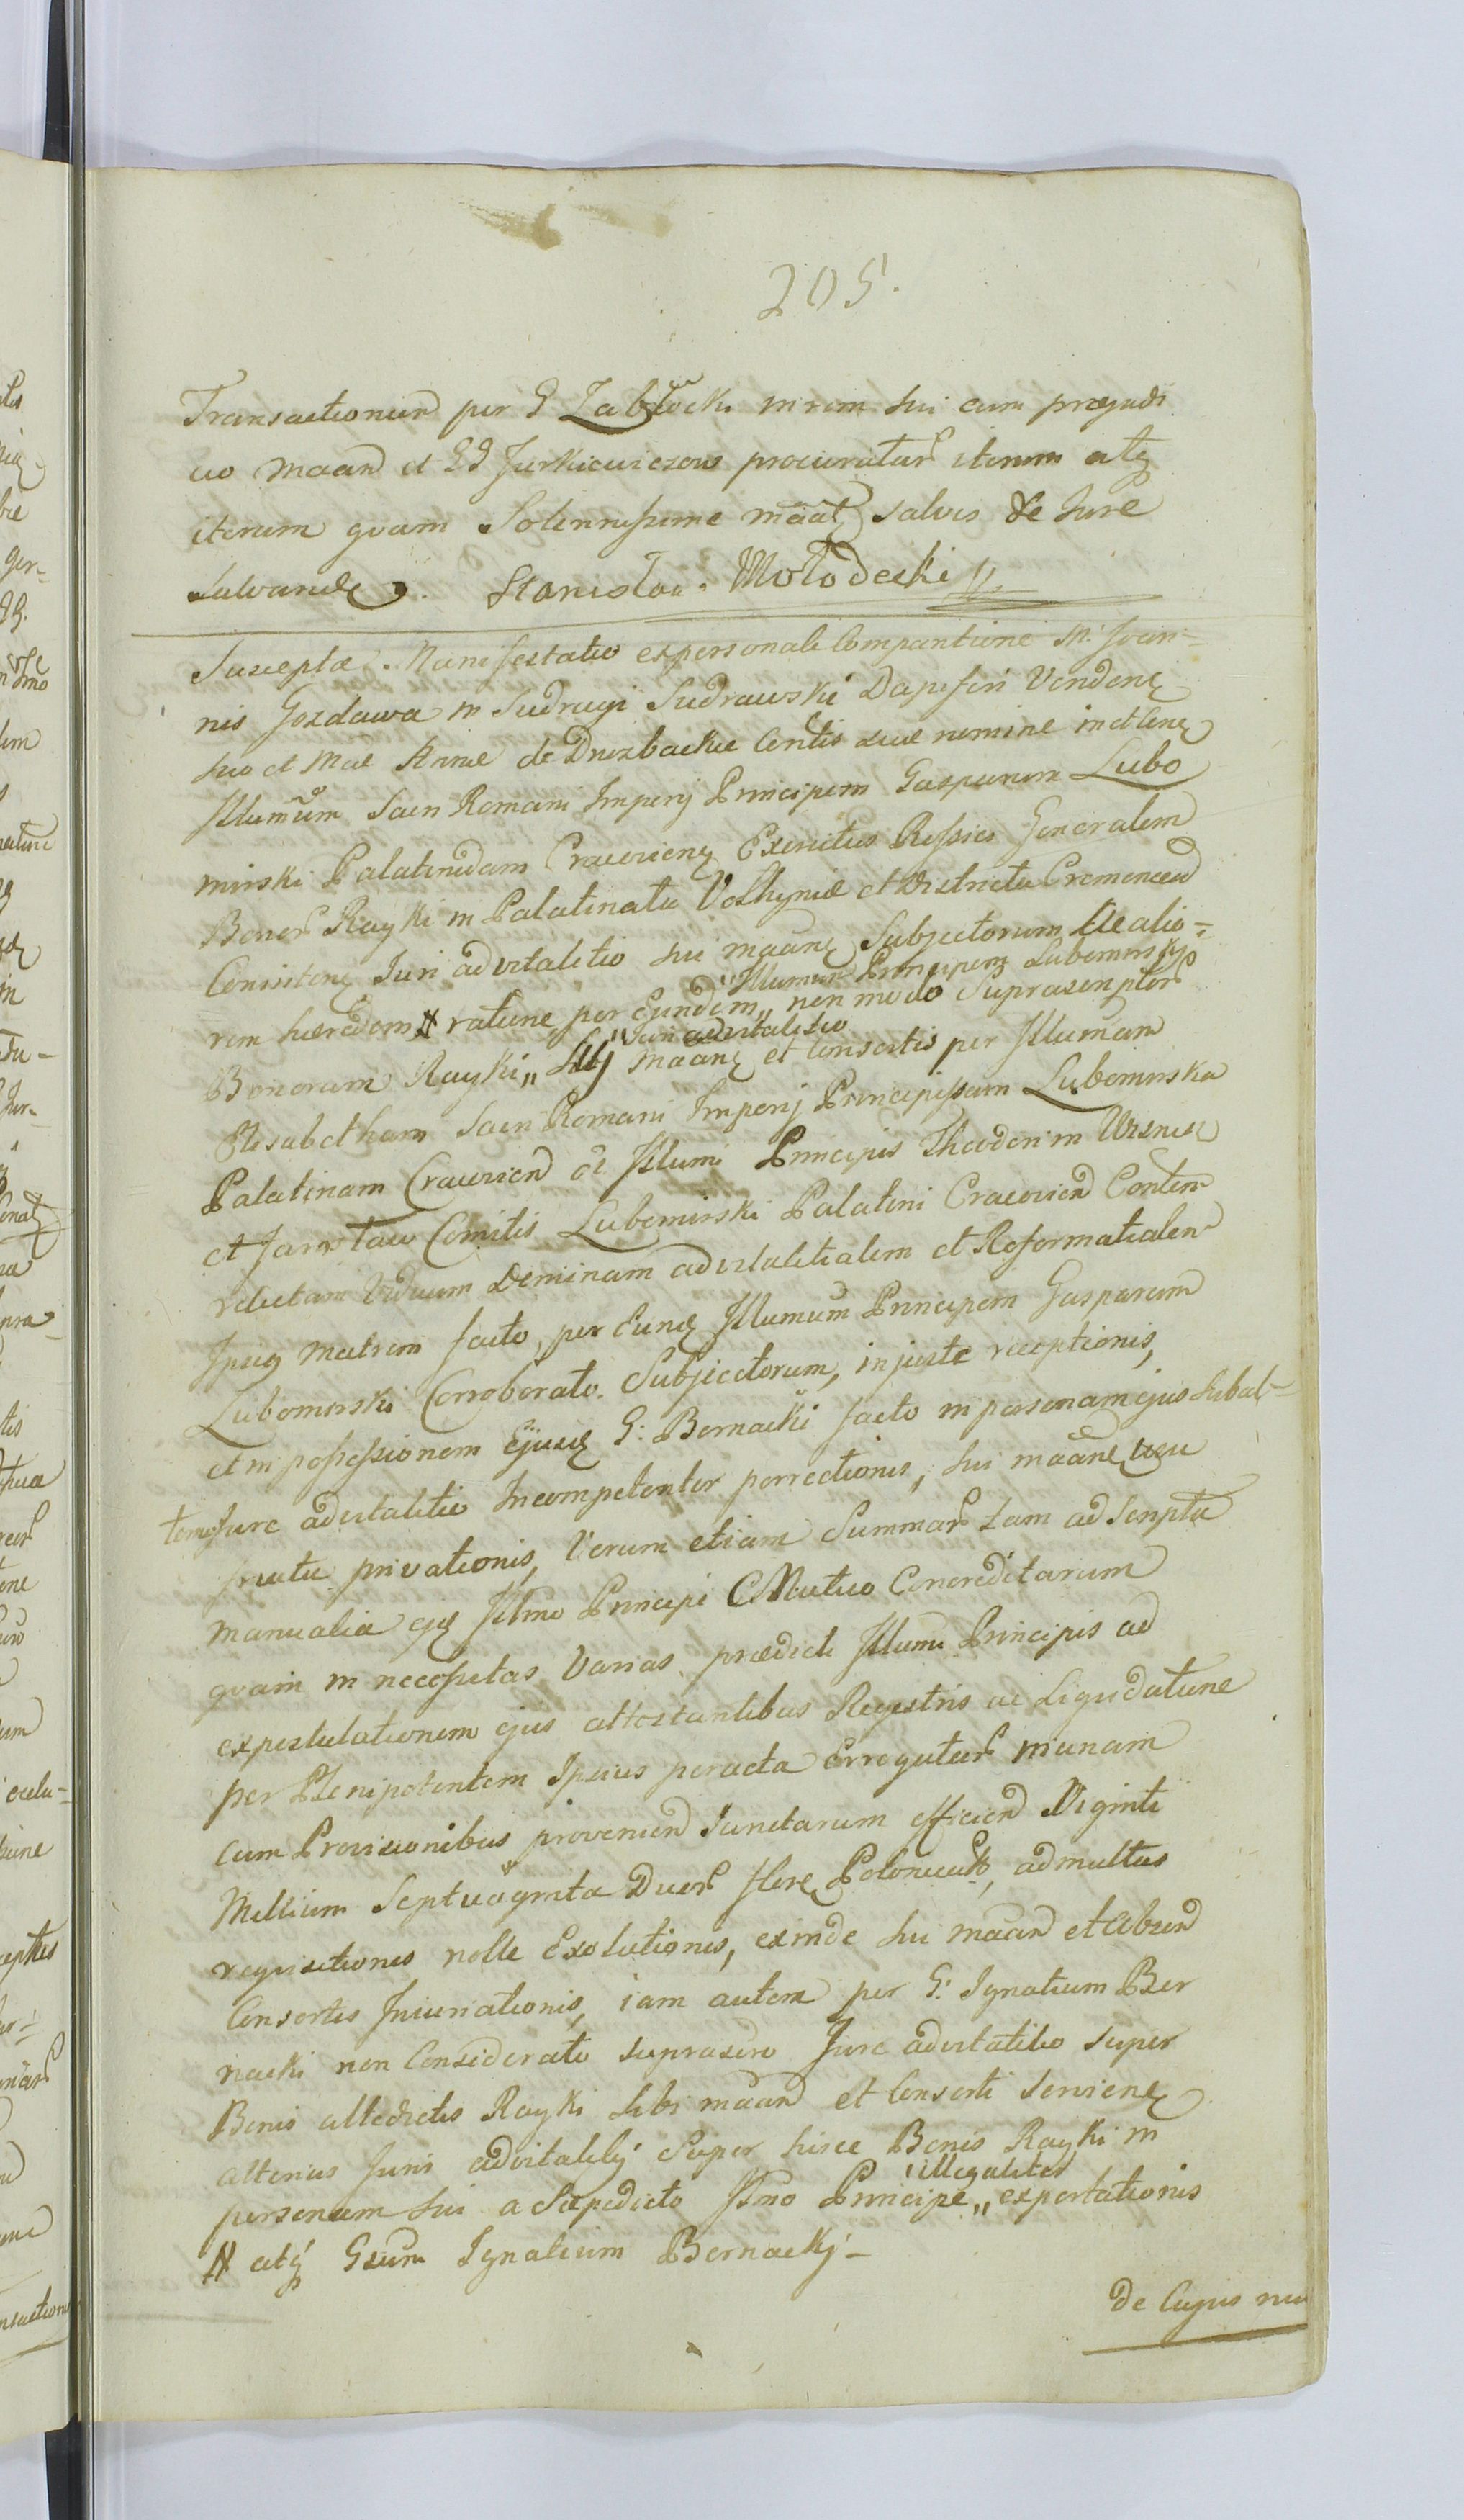 205.
Transactionem per G Zabłocki in rem sui cum præjudi
cio maan et GG Jurkiewiczow procuratur iterum atq
iterum quam Solennissime maat salvis de Jure
Salvandis. Stanislaw Mołodecki
Suscepta. Manifestatio ex personali Comparitione M: Joan=
nis Gozdawa in Sudragi Sudrawski Dapiferi Venden
suo et Mae Annæ de Druzbackie Contis suæ nomine in et Cone
Illumum Sacri Romani Imperij Principem Gasparum Lubo
mirski Palatinidam Cracovien Exercitus Rossici Generalem
Bonor Rayki in Palatinatu Volhyniæ et Districtu Cremenecen
Consisten Juri advitalitio sui maane Subjectorum Actio=
rem hæredem ratione per Eundem „ non modo Suprascriptor
"Illumum Principem Lubomirskj
Bonorum Rayki „ Sibj maane et Consortis per Illumam
"Juri advitalitio
Elisabetham Sacri Romani Imperij Principissam Lubomirska
Palatinam Cracovien ol Illumi Principis Theodori in Wisnicz
et Jarosław Comitis Lubomirski Palatini Cracovien Contem
relictam Viduam Dominam advitalitialem et Reformatialem
Ipsiq matrem facto, per Eund Illumum Principem Gasparum
Lubomirski Corroborato. Subjectorum, injuste receptionis,
et in possessionem Ejusd G: Bernacki facto in personam ejus Subal=
terno Jure advitalitio Incompetenter porrectionis, sui maane usu
fructu privationis, Verum etiam Summar tam ad Scripta
manualia ejq Illmo Principi C Mutuo Concreditarum
quam in necessitas Varias prædicti Illumi Principis ad
expostulationem ejus attestantibus Regestris ac Liquidatione
per Plenipotentem Ipsius peracta Errogatar in unam
cum Provisionibus provenien Junctarum efficien Viginti
Millium Septuaginta Duor flore Polonicak, ad multas
requisitiones nolle Exolutionis, exinde sui maan et Absen
Consortis Iniuriationis, iam autem per G: Ignatium Ber
nacki non Considerato suprascro Jure advitalitio super
Bonis altedictis Rayki sibi maan et Consorti Serviene
alterius Juris advitalitj Super hisce Bonis Rayki in
personam sui a Sæpedicto Illmo Principe „ exportationis
"illegaliter
atq Gsum Ignatium Bernackj-
de Cujus nu